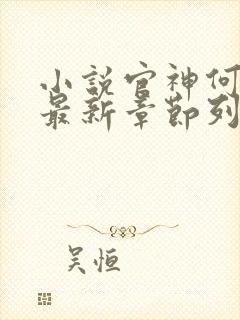 小説官神何
最新章節列
吴恒